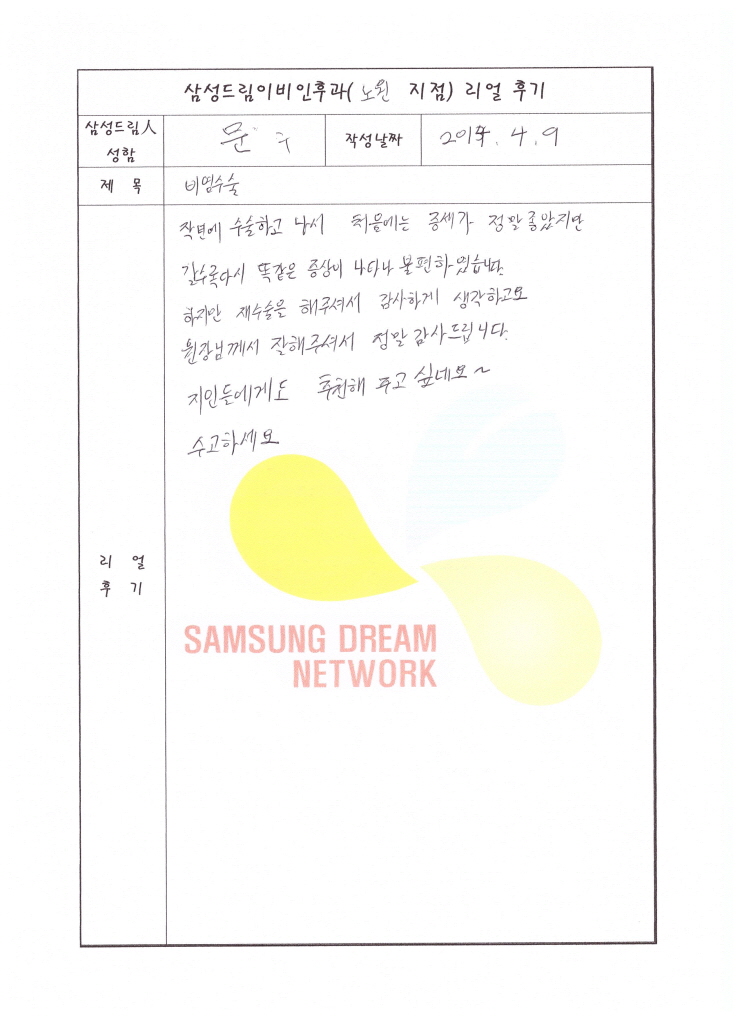 삼성드림이비인후과( 노원 지점) 리얼 후기
삼성드림人 성함
문 수
작성날짜
2015. 4. 9
제 목
비염수술
작년에 수술하고 나서 처음에는 증세가 정말 좋았지만
갈수록 다시 똑같은 증상이 나타나 불편하였습니다.
하지만 재수술을 해주셔서 감사하게 생각하고요
원장님께서 잘해주셔서 정말 감사드립니다.
지인들에게도 추천해 주고 싶네요~
수고하세요
리 얼
후 기
SAMSUNG DREAM
NETWORK